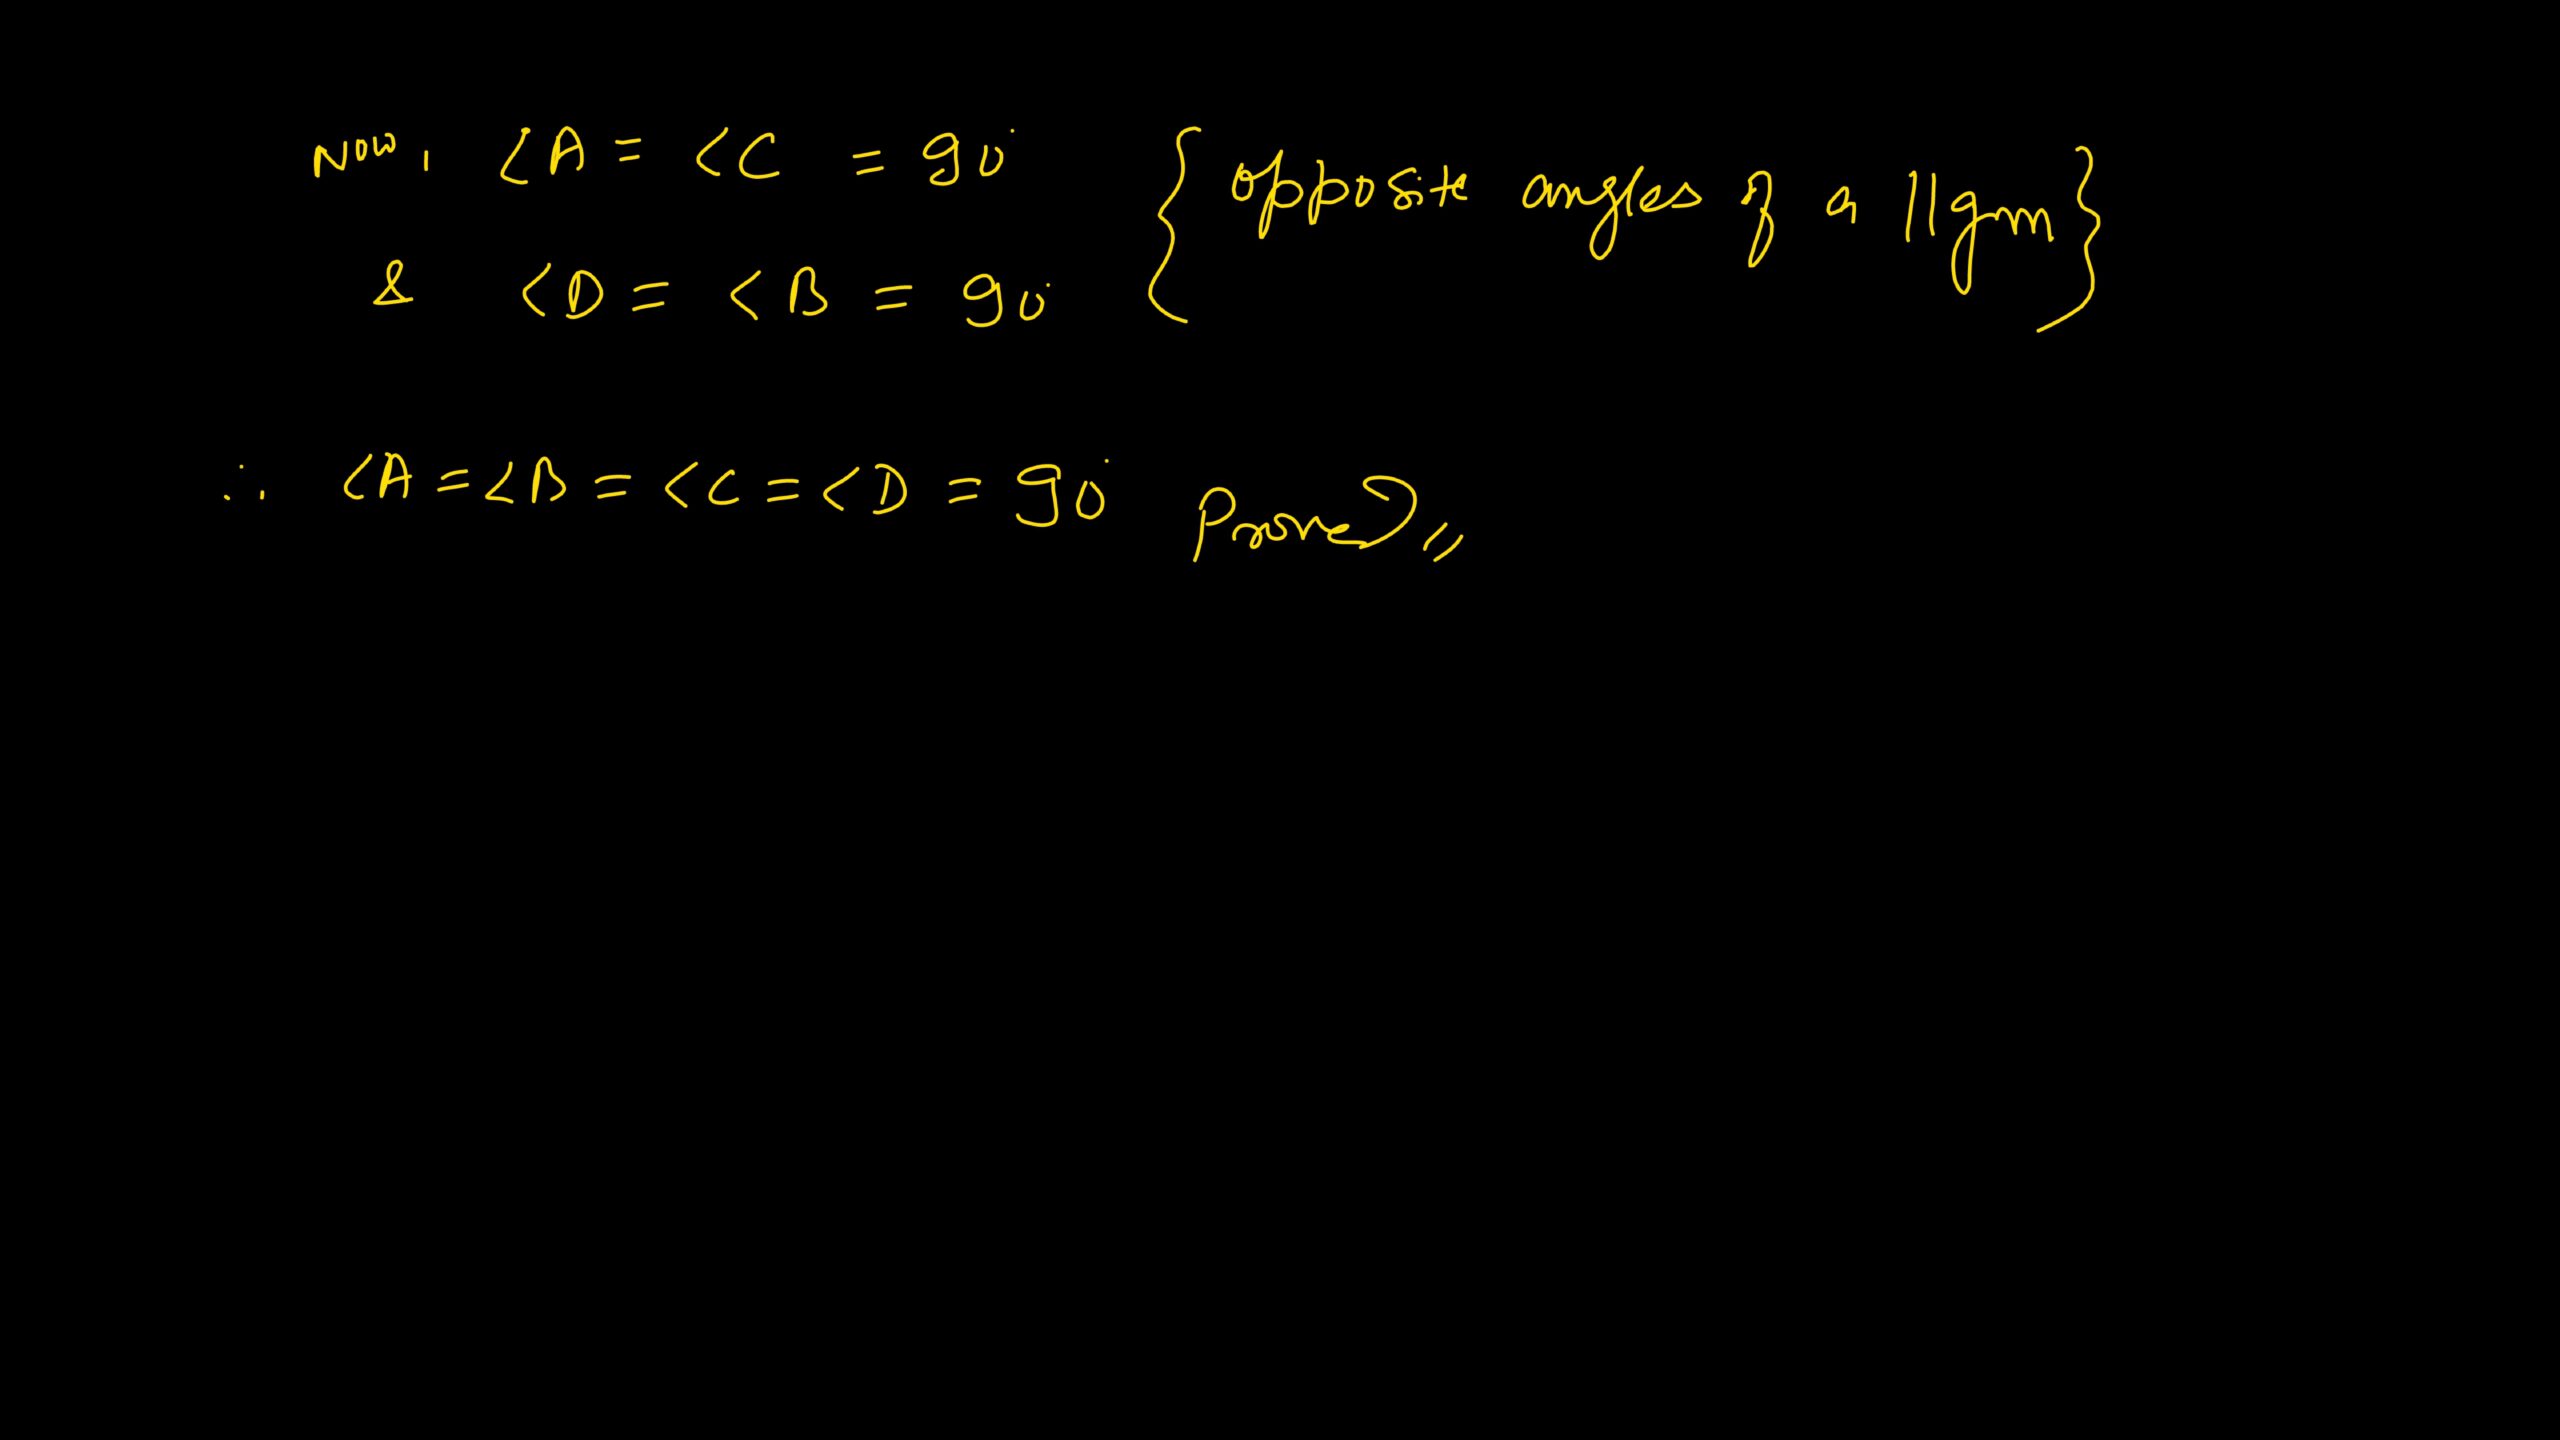 Now, ∠A = ∠C = 90° { opposite angles of a ||gm }
& ∠D = ∠B = 90°
∴ ∠A = ∠B = ∠C = ∠D = 90° Proved,,